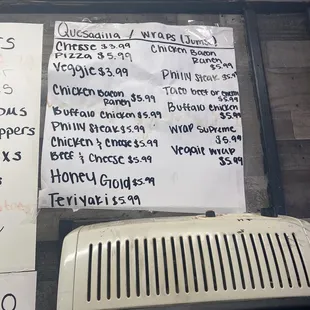 Quesadilla / Wraps (Jumbo)
Cheese $3.99
Pizza $5.99
Veggie $3.99
Chicken Bacon
Ranch $5.99
Buffalo Chicken $5.99
Philly Steak $5.99
Chicken & Cheese $5.99
Beef & Cheese $5.99
Honey Gold $5.99
Teriyaki $5.99
Chicken Bacon
Ranch $5.99
Philly Steak $5.99
Taco beef or
$5.99
Buffalo Chicken
$5.99
Wrap Supreme
$5.99
Veggie Wrap
$5.99
ppers